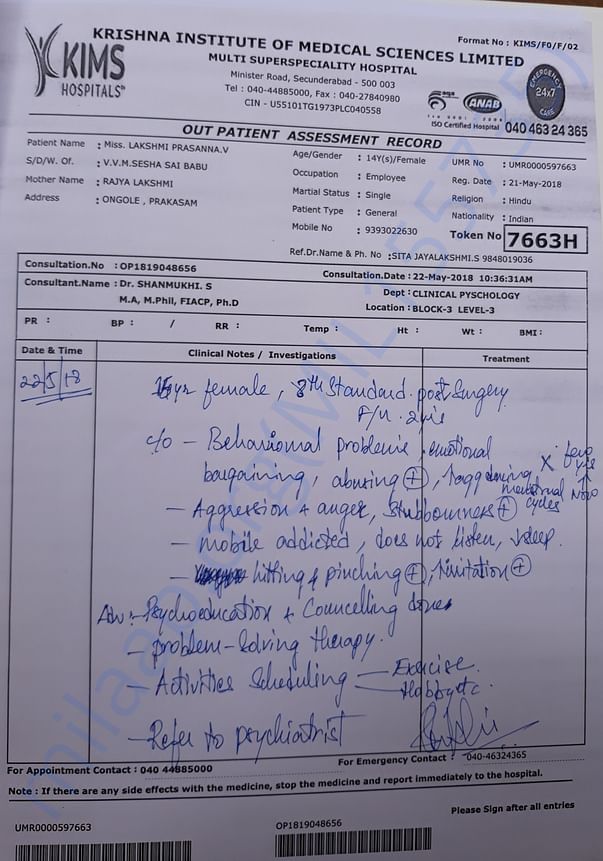 KRISHNA INSTITUTE OF MEDICAL SCIENCES LIMITED
Format No : KIMS/F0/F/02
KIMS
HOSPITALS
MULTI SUPERSPECIALITY HOSPITAL
Minister Road, Secunderabad - 500 003
Tel : 040-44885000, Fax : 040-27840980
CIN - U55101TG1973PLC040558
ANAB
ISO Certified Hospital
EMERGENCY 24x7 CARE
040 463 24 365
OUT PATIENT ASSESSMENT RECORD
Patient Name : Miss. LAKSHMI PRASANNA.V
Age/Gender : 14Y(s)/Female
UMR No : UMR0000597663
S/D/W. Of. : V.V.M.SESHA SAI BABU
Occupation : Employee
Reg. Date : 21-May-2018
Mother Name : RAJYA LAKSHMI
Martial Status : Single
Religion : Hindu
Address : ONGOLE , PRAKASAM
Patient Type : General
Nationality : Indian
Mobile No : 9393022630
Token No 7663H
Ref.Dr.Name & Ph. No :SITA JAYALAKSHMI.S 9848019036
Consultation.No : OP1819048656
Consultation.Date : 22-May-2018 10:36:31AM
Consultant.Name : Dr. SHANMUKHI. S
Dept : CLINICAL PYSCHOLOGY
M.A, M.Phil, FIACP, Ph.D
Location : BLOCK-3 LEVEL-3
PR : BP : / RR : Temp : Ht : Wt : BMI :
Date & Time
Clinical Notes / Investigations
Treatment
22/5/18
yr female, 8th Standard. post Surgery
F/u. 2yrs
c/o - Behavioural problems, emotional
bargaining, abusing (+),
menstrual cycles
Now
- Aggression + anger, Stubborness (+)
- mobile addicted, does not listen, sleep.
- hitting & pinching (+), (+)
Adv:- Psychoeducation + Councelling done
- problem-solving therapy.
- Activities Scheduling - Exercise.
- Hobby etc.
- Refer to psychiatrist
For Appointment Contact : 040 44885000
For Emergency Contact : 040-46324365
Note : If there are any side effects with the medicine, stop the medicine and report immediately to the hospital.
Please Sign after all entries
UMR0000597663
OP1819048656